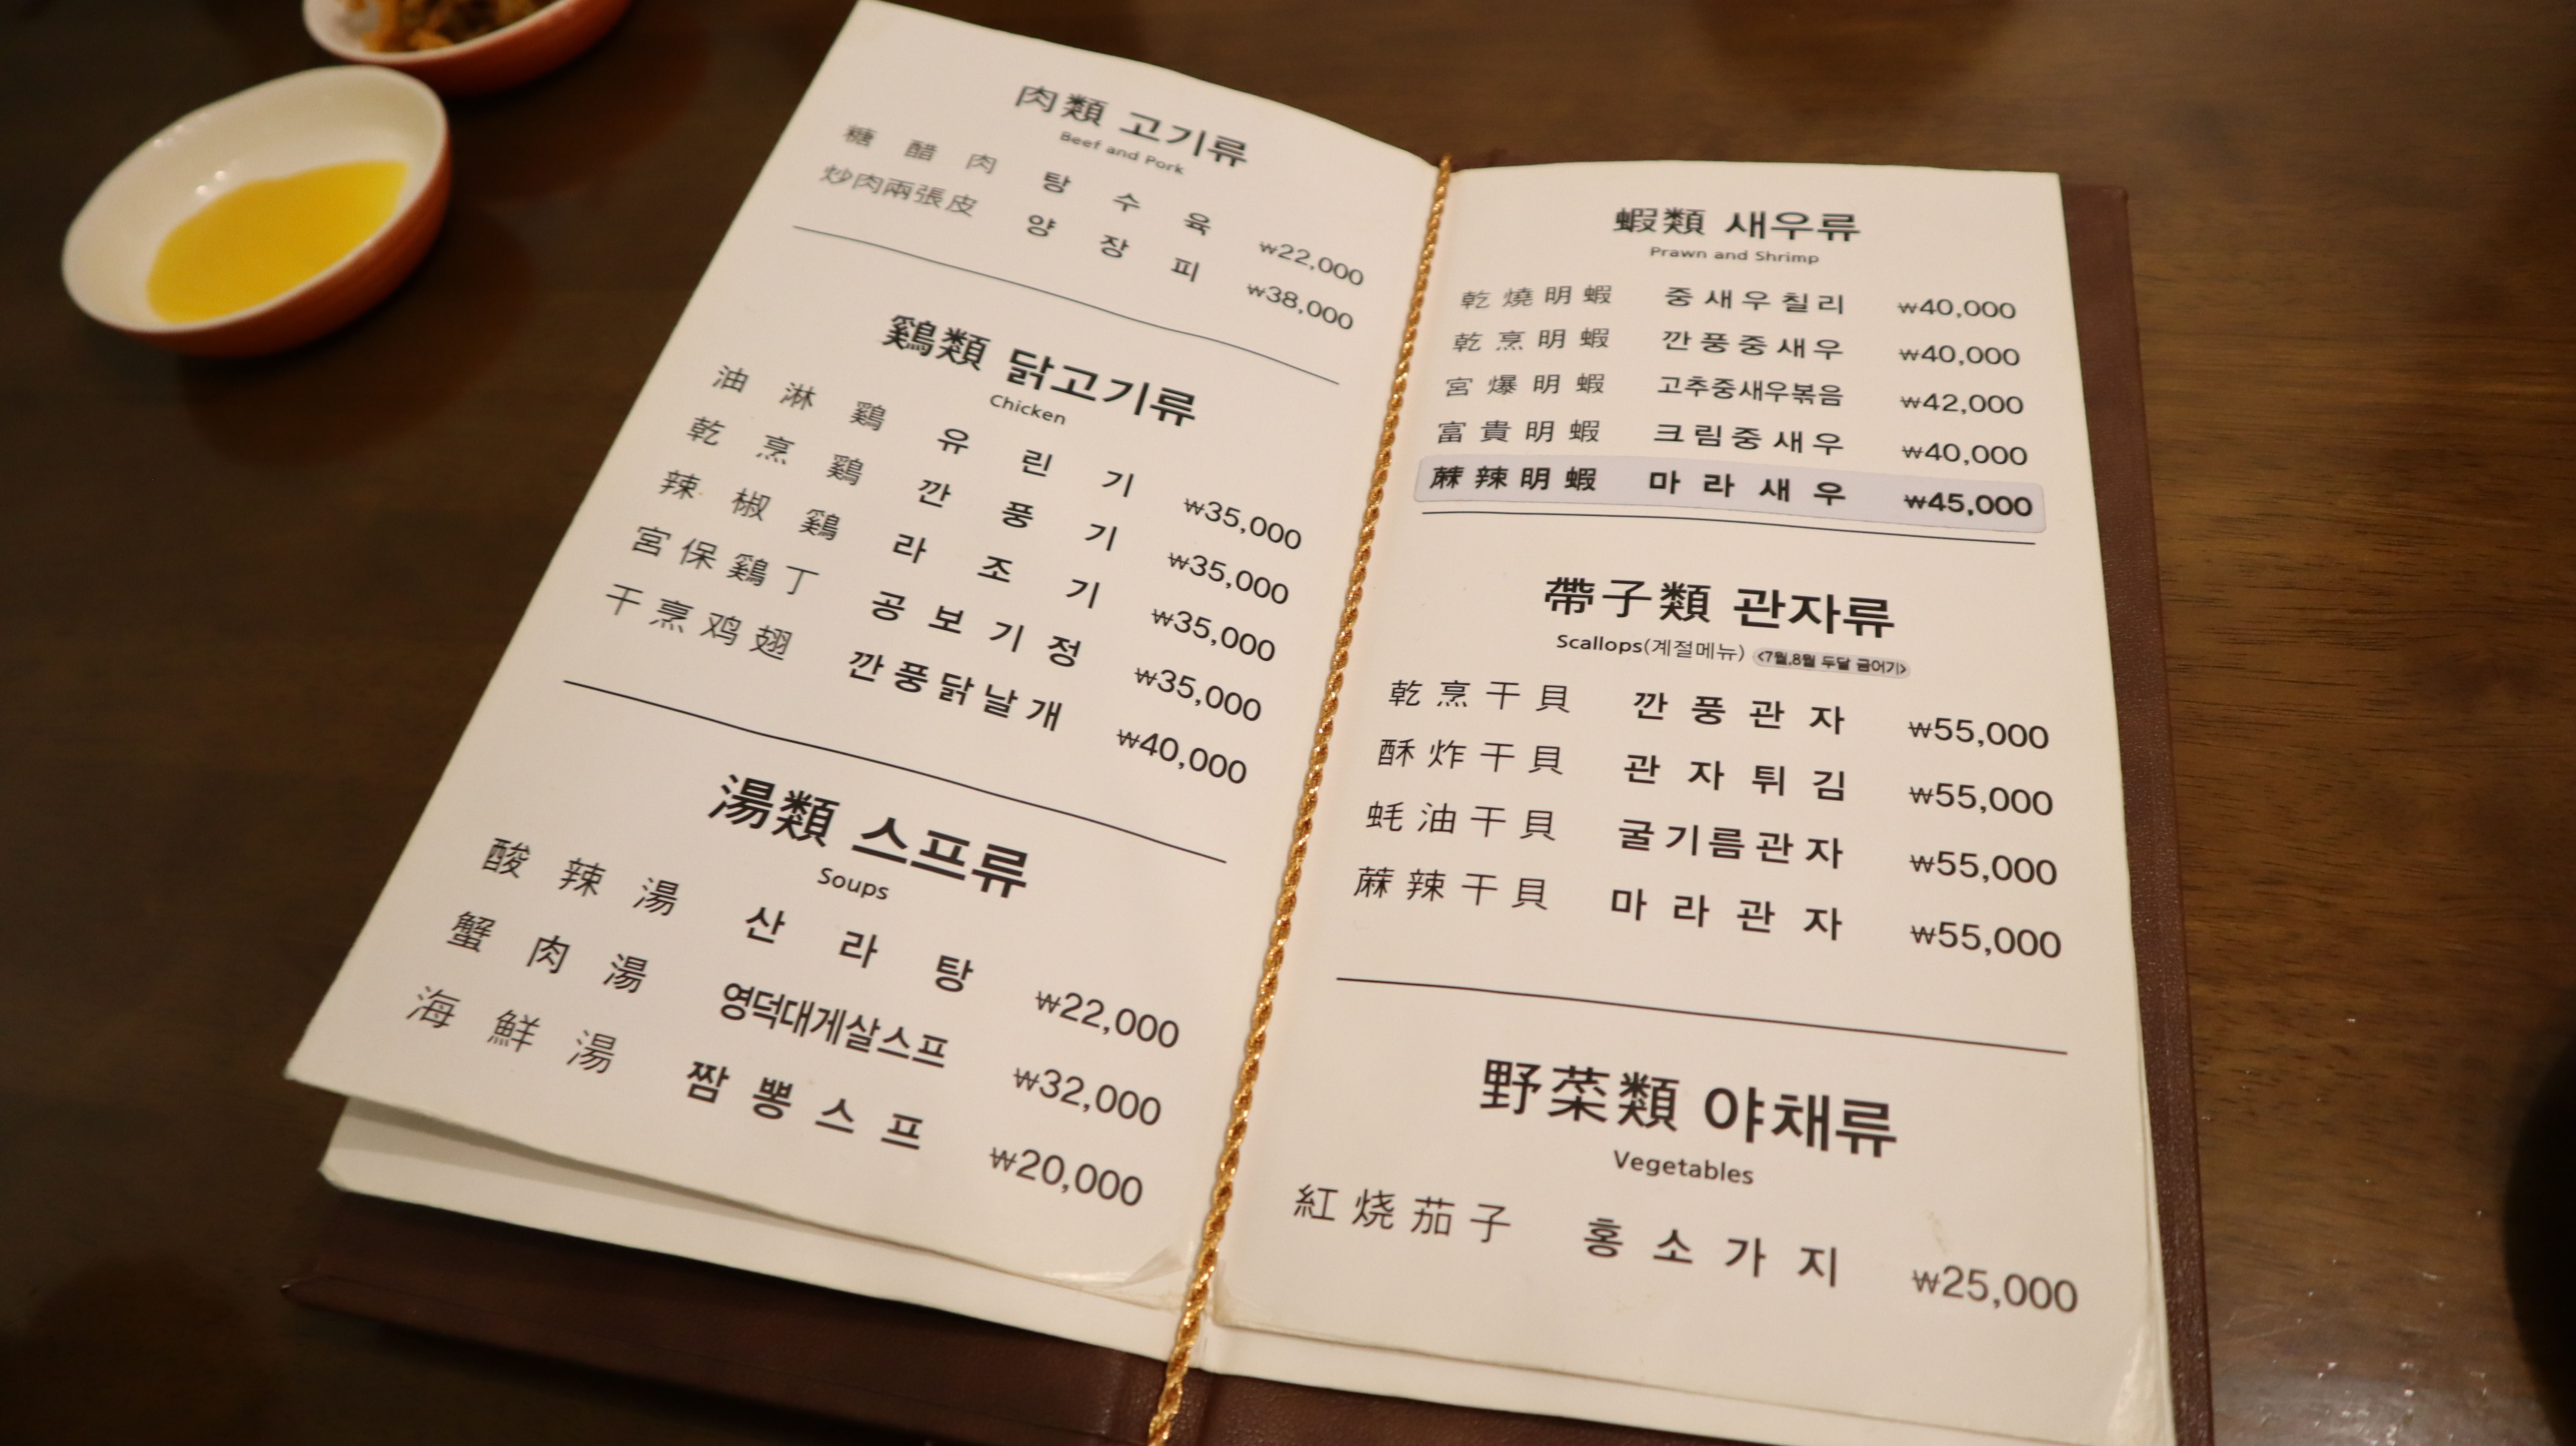 肉類 고기류
Beef and Pork
糖醋肉 탕수육 ₩22,000
炒肉兩張皮 양장피 ₩38,000
鷄類 닭고기류
Chicken
油淋鷄 유린기 ₩35,000
乾烹鷄 깐풍기 ₩35,000
辣椒鷄 라조기 ₩35,000
宮保鷄丁 공보기정 ₩35,000
干烹鸡翅 깐풍닭날개 ₩40,000
湯類 스프류
Soups
酸辣湯 산라탕 ₩22,000
蟹肉湯 영덕대게살스프 ₩32,000
海鮮湯 짬뽕스프 ₩20,000
蝦類 새우류
Prawn and Shrimp
乾燒明蝦 중새우칠리 ₩40,000
乾烹明蝦 깐풍중새우 ₩40,000
宮爆明蝦 고추중새우볶음 ₩42,000
富貴明蝦 크림중새우 ₩40,000
蔴辣明蝦 마라새우 ₩45,000
帶子類 관자류
Scallops(계절메뉴) <7월,8월 두달 금어기>
乾烹干貝 깐풍관자 ₩55,000
酥炸干貝 관자튀김 ₩55,000
蚝油干貝 굴기름관자 ₩55,000
蔴辣干貝 마라관자 ₩55,000
野菜類 야채류
Vegetables
紅烧茄子 홍소가지 ₩25,000